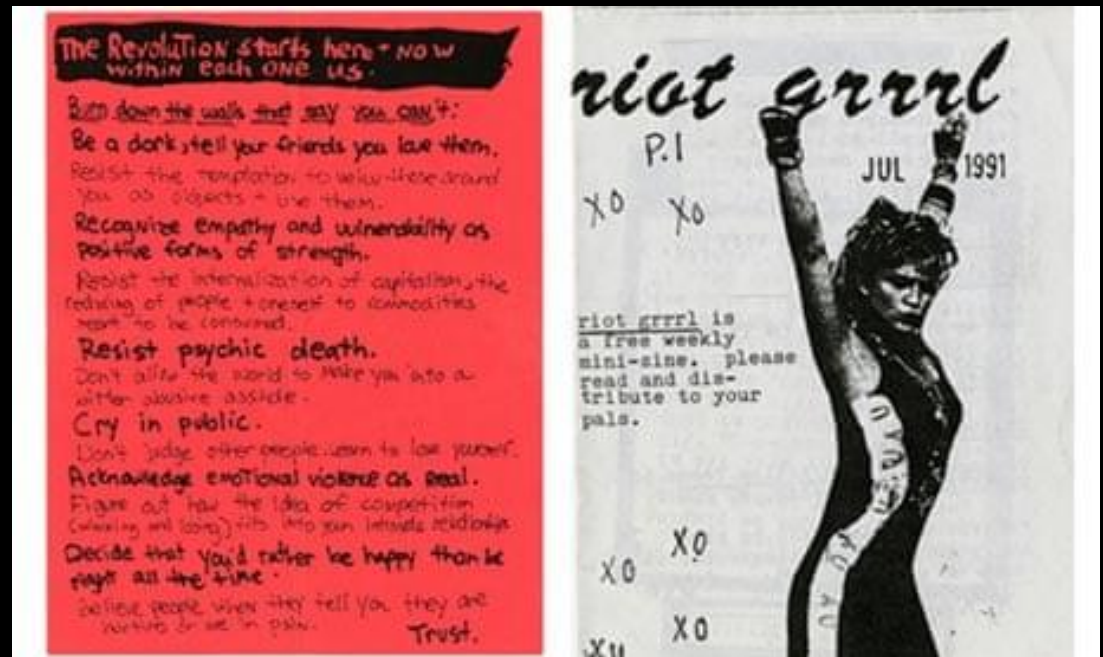 The Revolution starts here + now
within each one us.
Burn down the walls that say you can't:
Be a dork, tell your friends you love them.
Resist the temptation to view those around
you as objects + use them.
Recognize empathy and vulnerability as
positive forms of strength.
Resist the internalization of capitalism, the
reducing of people + oneself to commodities
meant to be consumed.
Resist psychic death.
Don't allow the world to make you into a
bitter abusive asshole.
Cry in public.
Don't judge other people. Learn to love yourself.
Acknowledge emotional violence as real.
Figure out how the idea of competition
(winning and losing) fits into your intimate relationships
Decide that you'd rather be happy than be
right all the time.
believe people when they tell you they are
hurting or are in pain.
Trust.
riot grrrl
P.1
JUL 1991
XO XO
riot grrrl is
a free weekly
mini-zine. please
read and dis-
tribute to your
pals.
XO
XO
XO